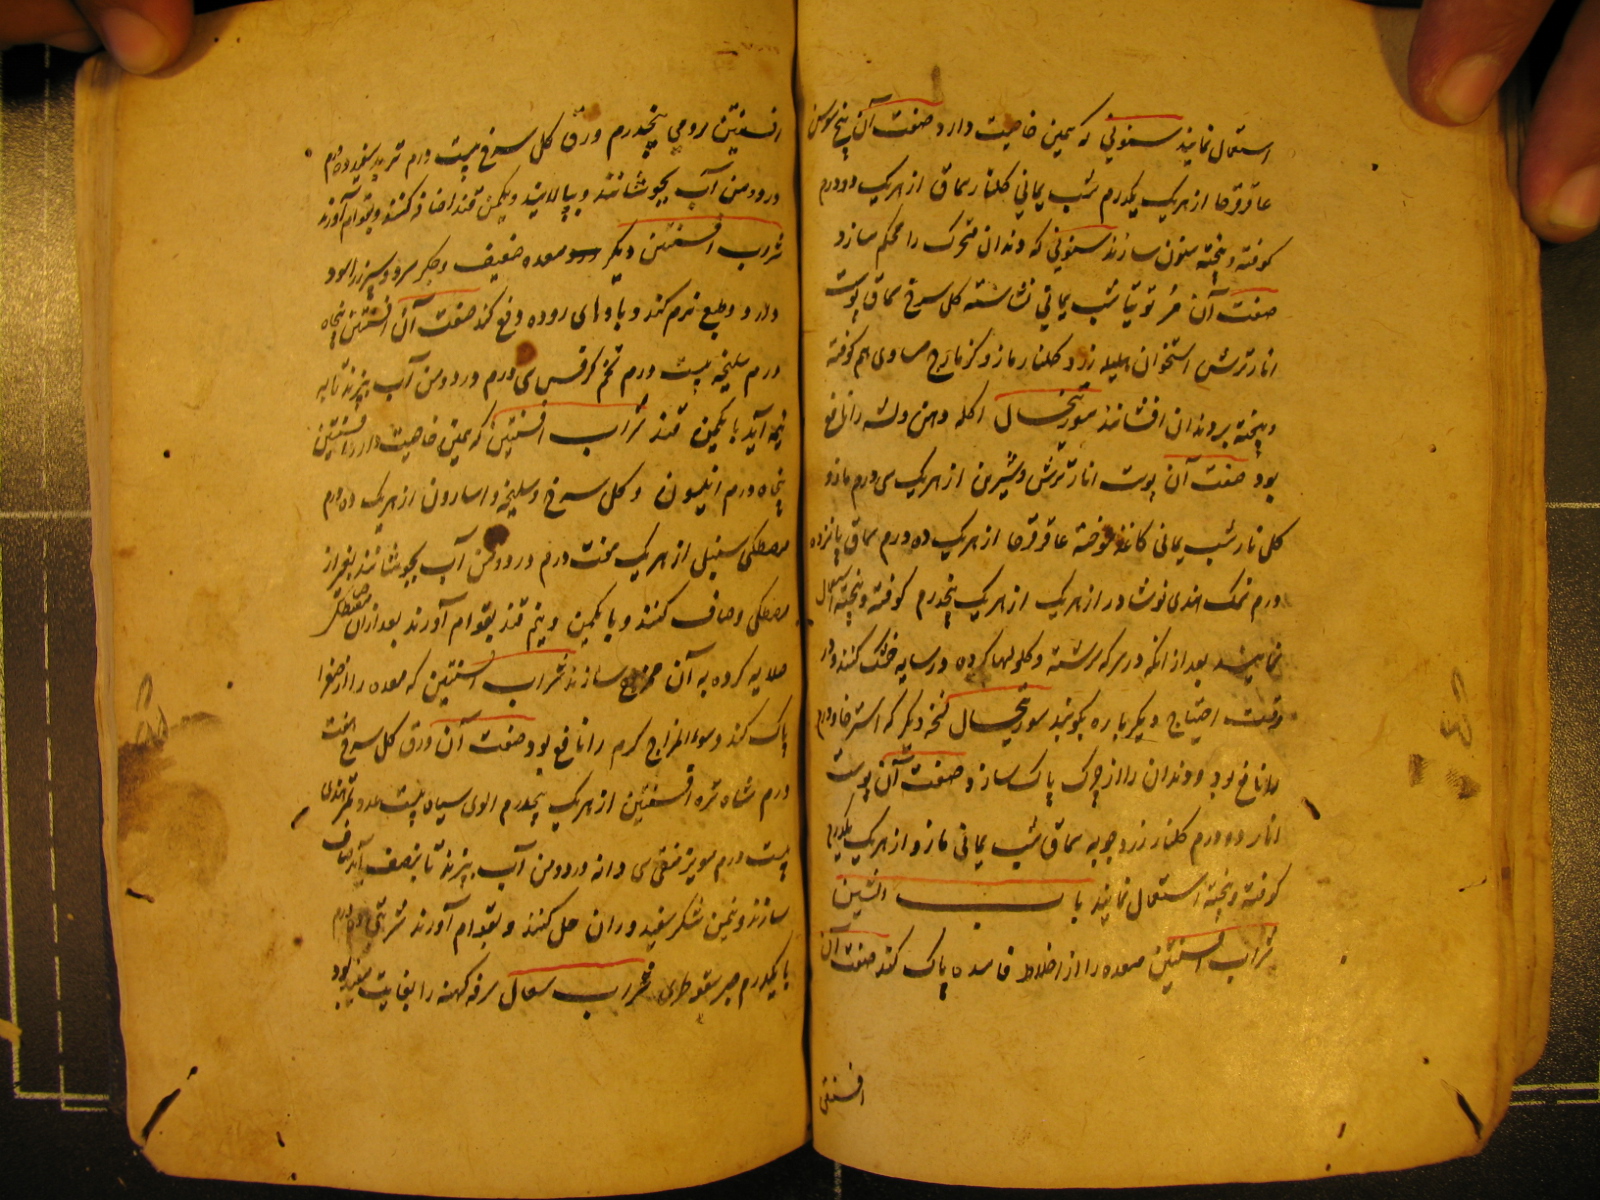 استعمال نمایند سنونی که همین خاصیت دارد صفت آن بیخ سوسن
عاقرقرحا از هریک یکدرم شب یمانی گلنار سماق از هریک دو درم
کوفته و بیخته سنون سازند سنونی که دندان متحرک را محکم سازد
صفت آن مر توتیا شب یمانی نشاسته گل سرخ سماق پوست
انار ترش استخوان هلیله زرد گلنار مازو کزمازج مساوی هم کوفته
و بیخته بر دندان افشانند سورنجال اکله دهن و لثه را نافع
بود صفت آن پوست انار ترش و شیرین از هریک سی درم مازو
گلنار شب یمانی کاغذ سوخته عاقرقرحا از هریک ده درم سماق پانزده
درم نمک هندی نوشادر از هریک از هریک پنجدرم کوفته و بیخته استعمال
نمایند بعد از انکه در سرکه سرشته و کلولها کرده در سایه خشک کنند و در
وقت احتیاج دیگر باره بکوبند سورنجال نسخه دیگر که استرخا و درم
را نافع بود و دندان را از چرک پاک سازد صفت آن پوست
انار ده درم گلنار زردچوبه سماق شب یمانی مازو از هریک یکدرم
کوفته و بیخته استعمال نمایند باب الشین
شراب افسنتین معده را از اخلاط فاسده پاک کند صفت آن
افسنتین
افسنتین رومی پنجدرم ورق گل سرخ بیست درم تربد سفید ده درم
در دو من آب بجوشانند و بپالایند و یکمن قند اضافه کنند و بقوام آورند
شراب افسنتین دیگر معده ضعیف و جگر سرد و سپرز را سود
دارد و طبع نرم کند و بادهای روده دفع کند صفت آن افسنتین پنجاه
درم سلیخه بیست درم تخم کرفس سی درم در دو من آب بپزند تا به
نیمه آید با یکمن قند شراب افسنتین که همین خاصیت دارد افسنتین
پنجاه درم انیسون و گل سرخ و سلیخه و اسارون از هریک ده درم
مصطکی سنبل از هریک هفت درم در دو من آب بجوشانند بغیر از
مصطکی و صاف کنند و با یکمن و نیم قند بقوام آورند بعد ازان مصطکی
صلایه کرده به آن ممزوج سازند شراب افسنتین که معده را از صفرا
پاک کند و سوءالمزاج گرم را نافع بود صفت آن ورق گل سرخ هفت
درم شاه تره افسنتین از هریک پنجدرم الوی سیاه بیست عدد تمرهندی
بیست درم مویز منقی سی دانه در دو من آب بپزند تا بنصف آید صاف
سازند و نیمن شکر سفید دران حل کنند و بقوام آورند شربتی ده درم
با یکدرم صبر سقوطری شراب سعال سرفه کهنه را بغایت مفید بود